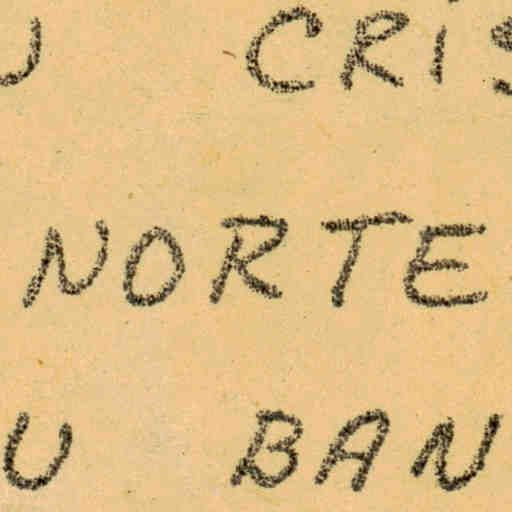 U CRIS
NORTE
U BAN